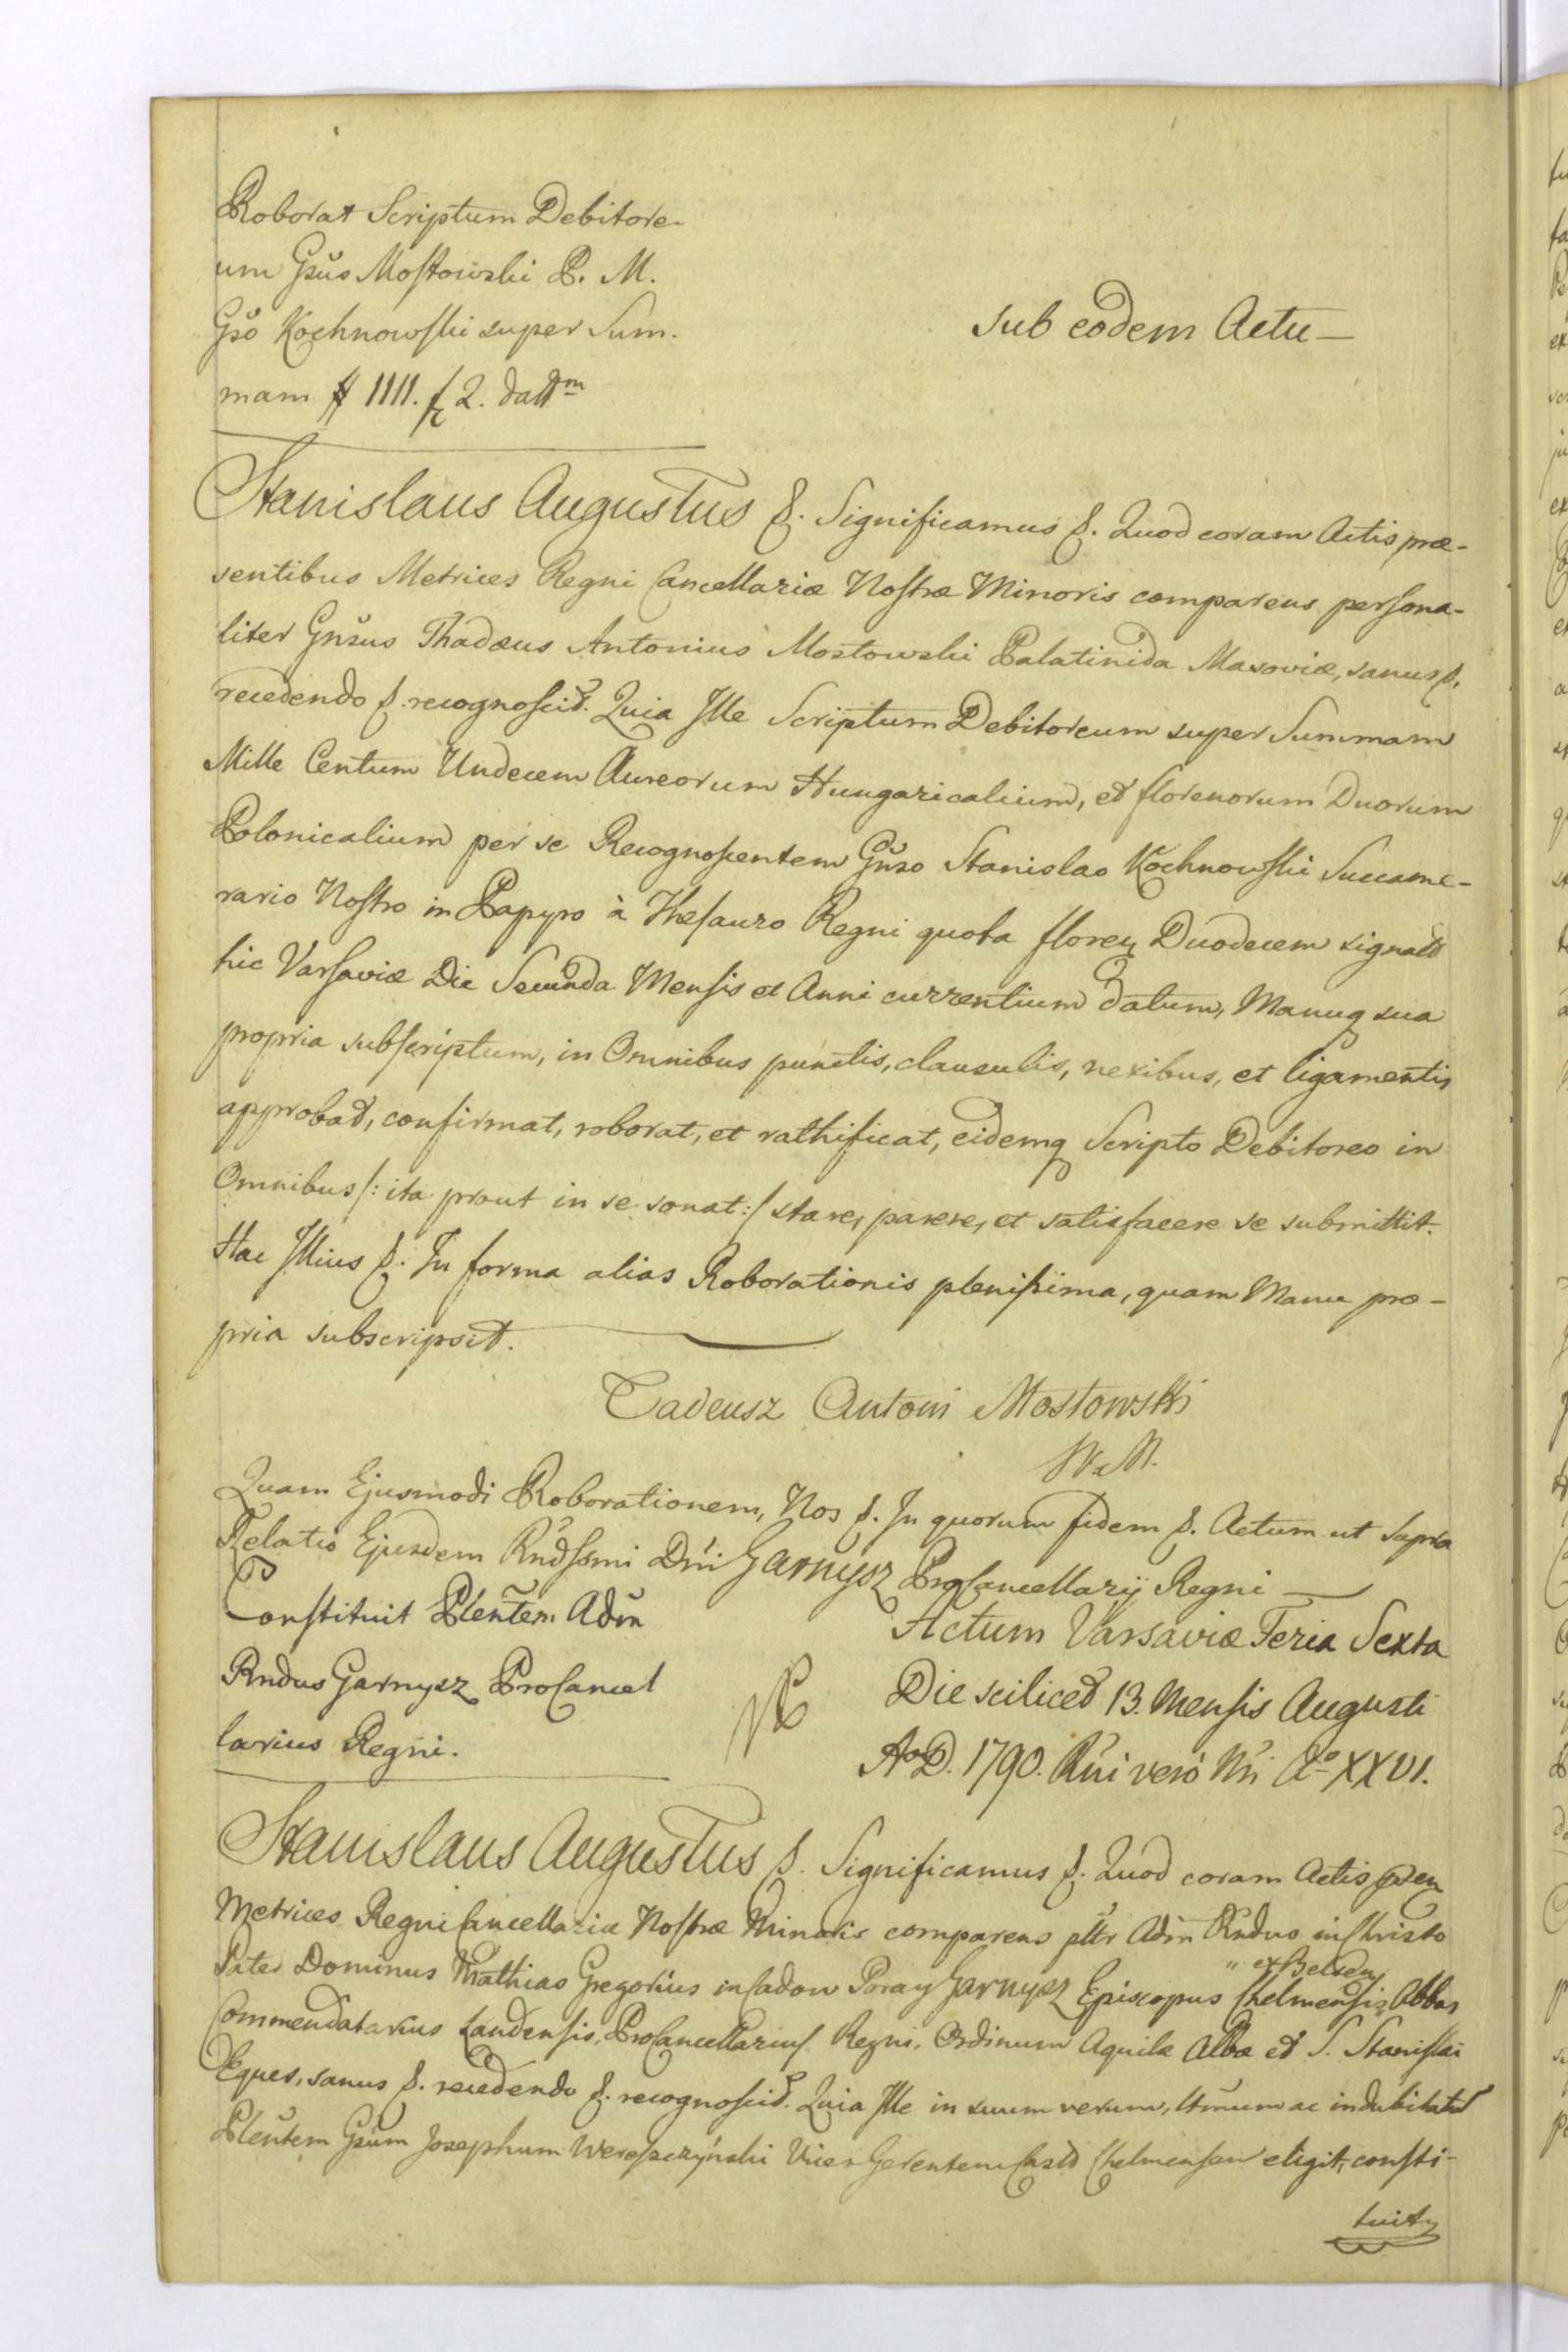 Roborat Scriptum Debitore-
um Gsus Mostowski P. M.
Gso Kochnowski super Sum-
mam # 1111. f 2. datt m
Sub eodem Actu —
Stanislaus Augustus &. Significamus &. Quod coram Actis præ-
sentibus Metrices Regni Cancellariæ Nostræ Minoris comparens persona-
liter Gnsus Thadæus Antonius Mostowski Palatinida Masoviæ, sanus &.
recedendo &. recognoscit. Quia Ille Scriptum Debitoreum super Summam
Mille Centum Undecem Aureorum Hungaricalium, et florenorum Duorum
Polonicalium per se Recognoscentem Gnso Stanislao Kochnowski Succame-
rario Nostro in Papyro à Thesauro Regni quota floren Duodecem signatt
hic Varsaviæ Die Secunda Mensis et Anni currentium datum, Manuq sua
propria subscriptum, in Omnibus punctis, clausulis, nexibus, et ligamentis
approbat, confirmat, roborat, et rathificat, eidemq Scripto Debitoreo in
Omnibus /: ita prout in se sonat :/ stare, parere, et satisfacere se submittit.
Hac Illius &. In forma alias Roborationis plenissima, quam Manu pro-
pria subscripsit.
Tadeusz Antoni Mostowski
W. M.
Quam Ejusmodi Roborationem, Nos &. In quorum fidem &. Actum ut supra
Relatio Ejusdem Rndssmi Dni Garnysz ProCancellarij Regni —
Constituit Plentem Adm
Rndus Garnysz ProCancel
larius Regni.
Actum Varsaviæ Feria Sexta
Die scilicet 13. Mensis Augusti
AoD. 1790. Rni vero Nri Ao XXVI.
Stanislaus Augustus &. Significamus &. Quod coram Actis præn
Metrices Regni Cancellariæ Nostræ Minoris comparens pltr Adm Rndus in Christo
Pater Dominus Mathias Gregorius in Cadow Poray Garnysz Episcopus Chelmensis " et Belzen Abbas
Commendatarius Landensis, ProCancellarius Regni, Ordinum Aquilæ Albæ et S. Stanislai
Eques, sanus &. recedendo &. recognoscit. Quia Ille in suum verum, ltmum ac indubitatt
Plentem Gsum Josephum Wereszczyński Vices Gerentem Castr Chelmensem eligit, consti-
tuitq